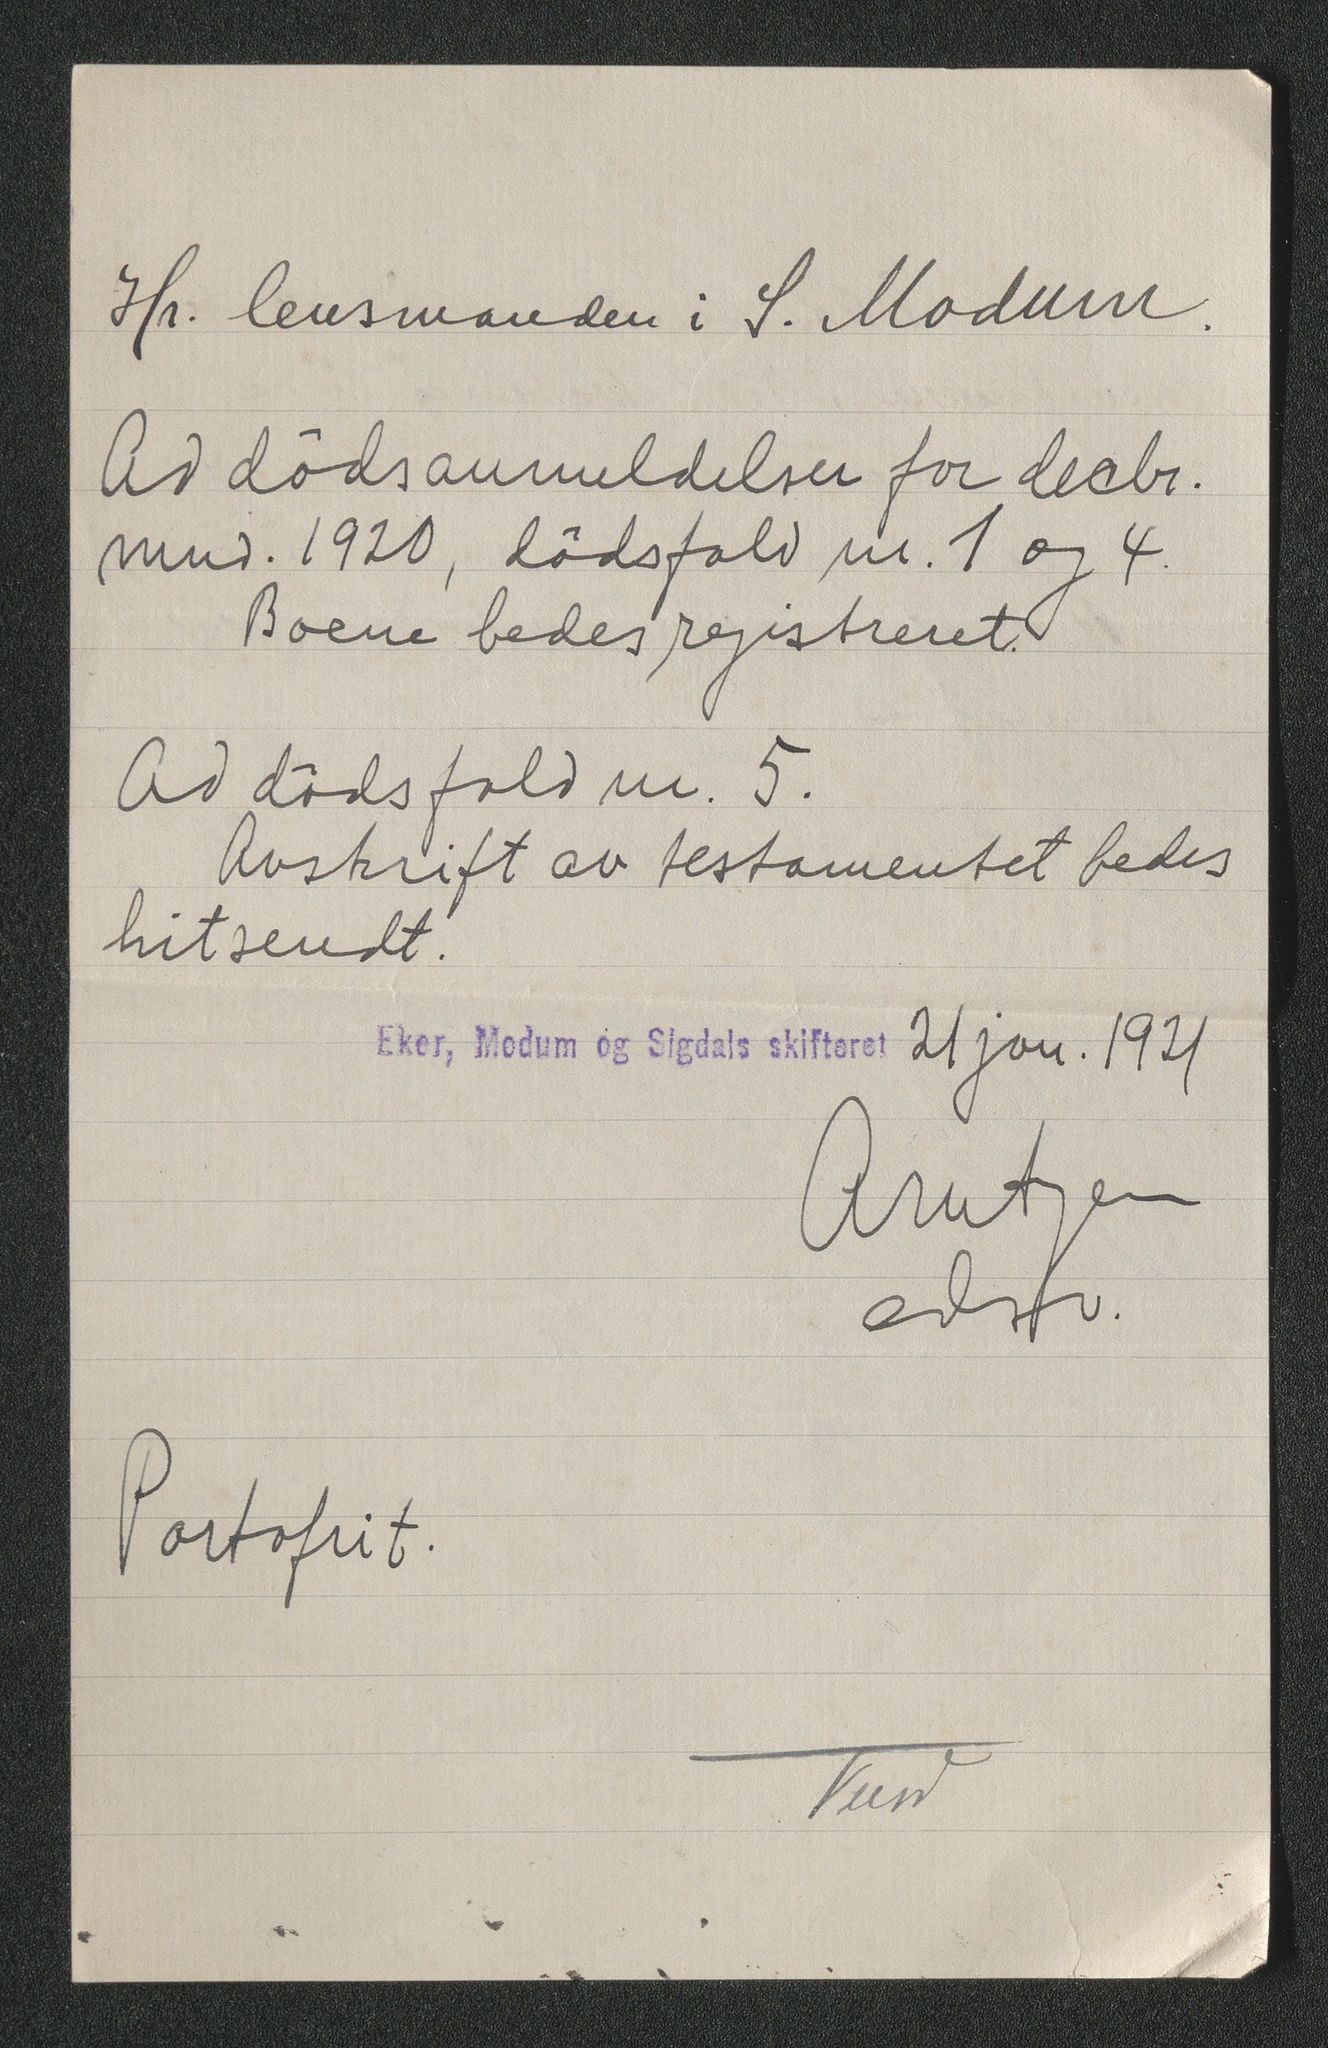 Hr. lensmanden i S. Modum.
Ad dödsanmeldelser for decbr.
mnd. 1920, dödsfald nr. 1 og 4.
Boene bedes registreret.
Ad dödsfald nr. 5.
Avskrift av testamentet bedes
hitsendt.
Eker, Modum og Sigdals skifteret 21 jan. 1921
Arntzen
Portofrit.